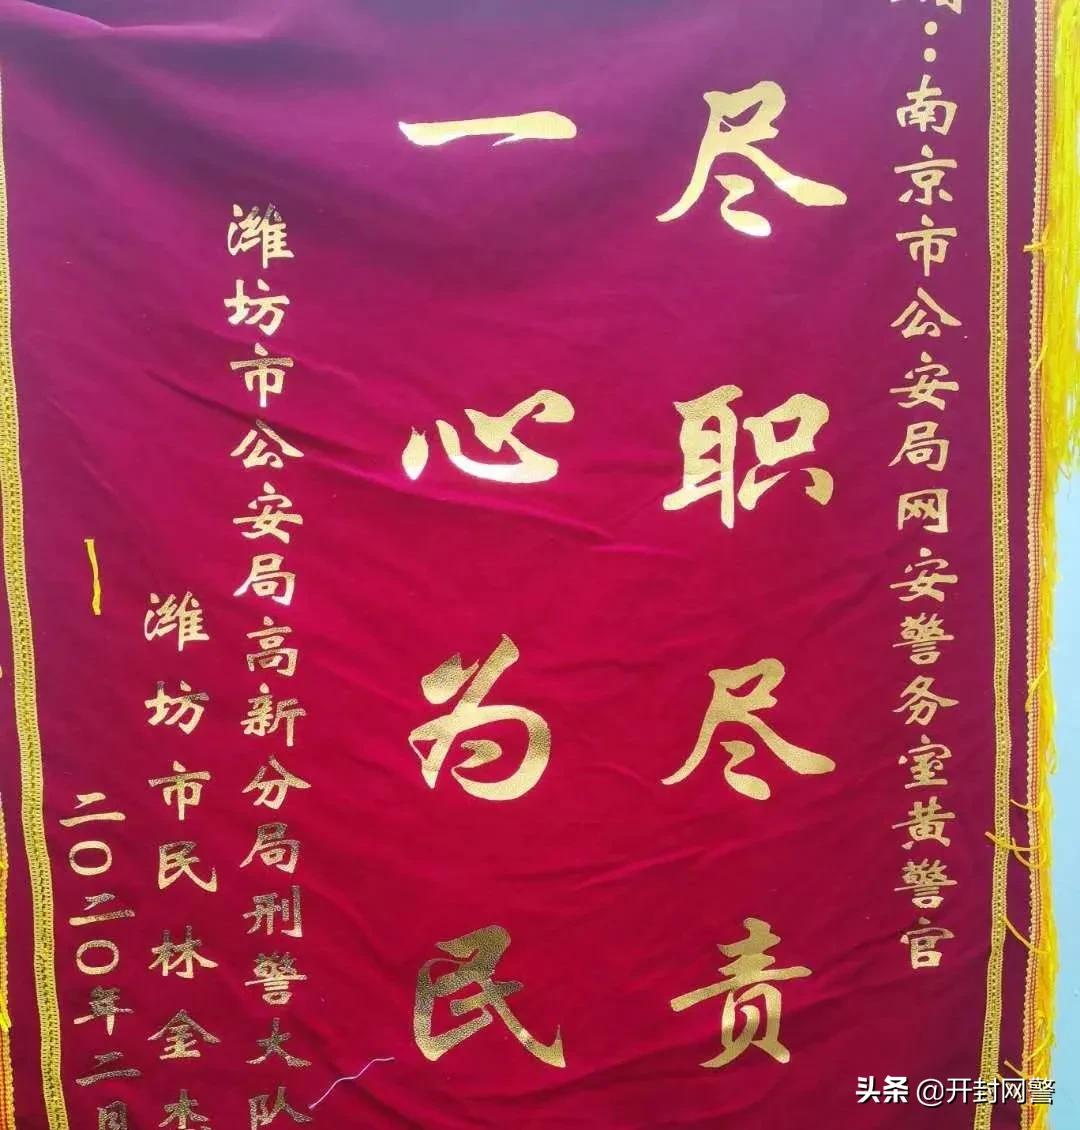 ：南京市公安局网安警务室黄警官
尽职尽责
一心为民
潍坊市公安局高新分局刑警大队
潍坊市民林金杰
二〇二〇年二月
头条 @开封网警